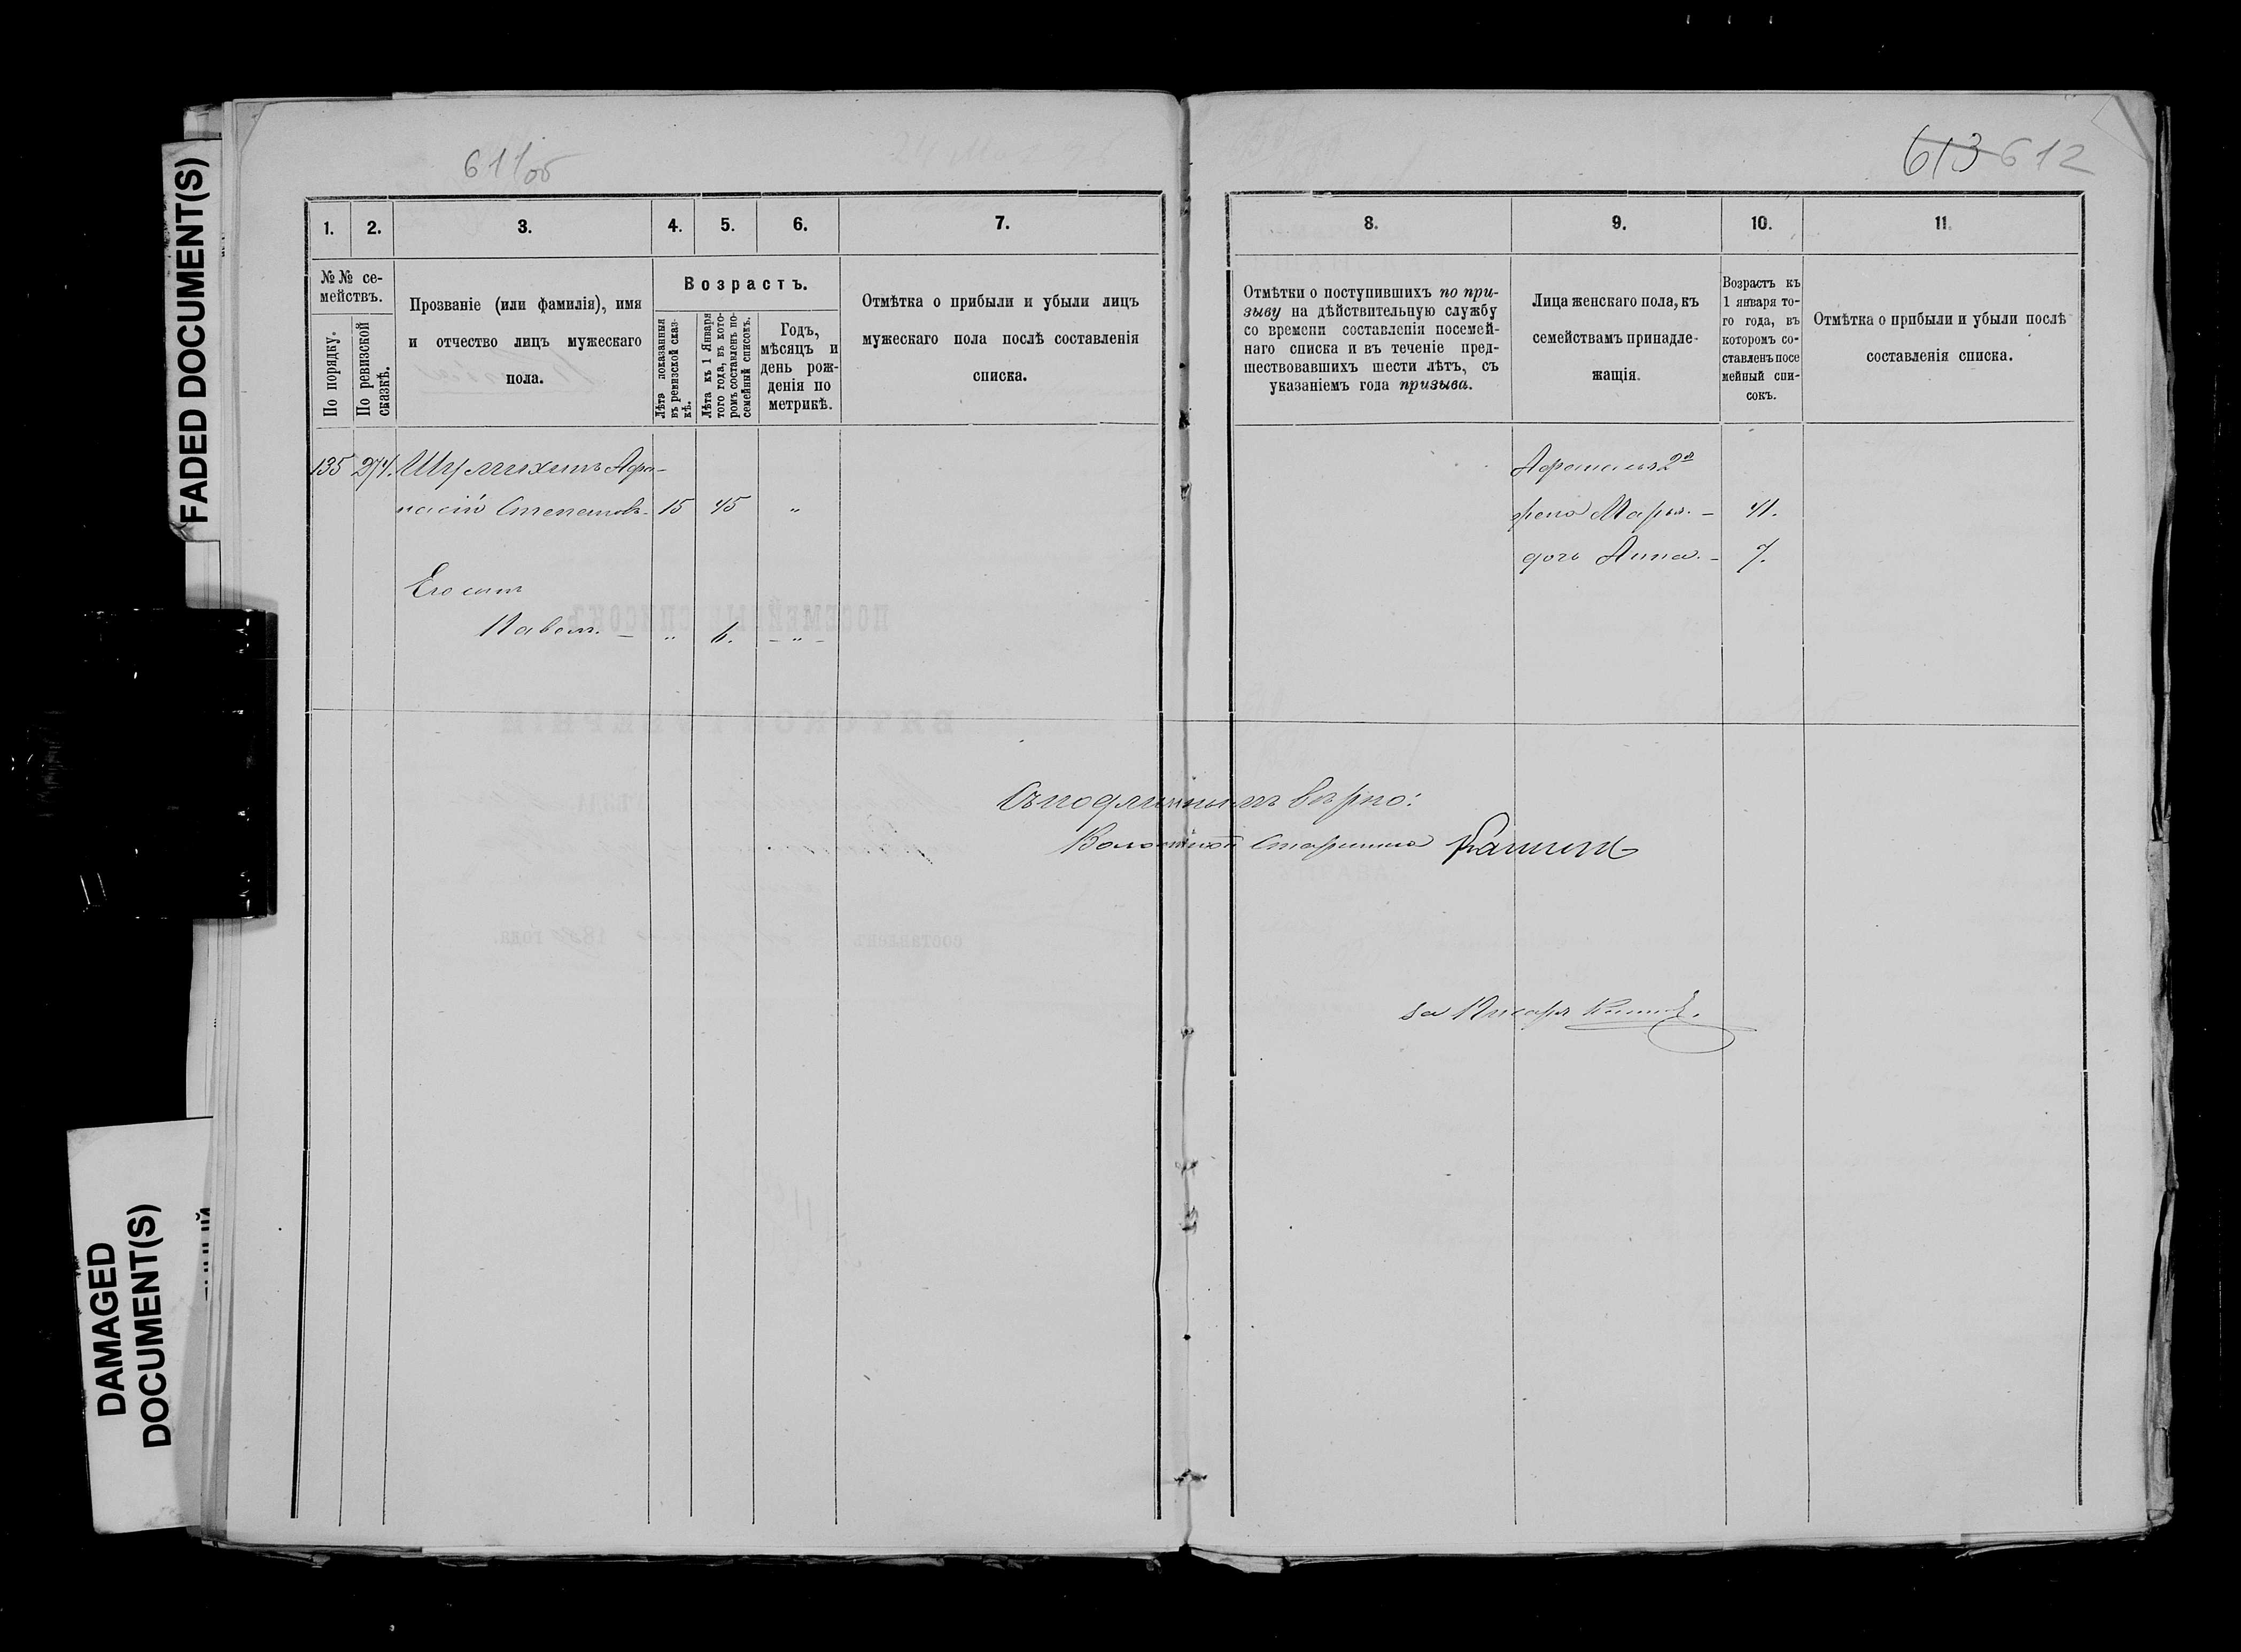 FADED DOCUMENT(S)
DAMAGED
DOCUMENT(S)
611об
1.
2.
3.
4.
5.
6.
7.
№№ се-
мействъ.
По порядку.
По ревизской
сказкѣ.
Прозваніе (или фамилія), имя
и отчество лицъ мужескаго
пола.
Возрастъ.
Лѣта показанныя
въ ревизской сказ-
кѣ.
Лѣта къ 1 Января
того года, въ кото-
ромъ составленъ по-
семейный списокъ.
Годъ,
мѣсяцъ и
день рож-
денія по
метрикѣ.
Отмѣтка о прибыли и убыли лицъ
мужескаго пола послѣ составленія
списка.
135 274. Шулмихинъ Афа-
насій Степановъ- 15 45 "
Его сынъ
Павелъ. - " 6. - " -
613 612
8.
9.
10.
11.
Отмѣтки о поступившихъ по при-
зыву на дѣйствительную службу
со времени составленія посемей-
наго списка и въ теченіе пред-
шествовавшихъ шести лѣтъ, съ
указаніемъ года призыва.
Лица женскаго пола, къ
семействамъ принадле-
жащія.
Возрастъ къ
1 января то-
го года, въ
которомъ со-
ставленъ посе
мейный спи-
сокъ.
Отмѣтка о прибыли и убыли послѣ
составленія списка.
Афанасія 2я
жена Марья. - 41.
дочь Анна. - 7.
Съ подлиннымъ вѣрно:
Волостной Старшина
За Писаря